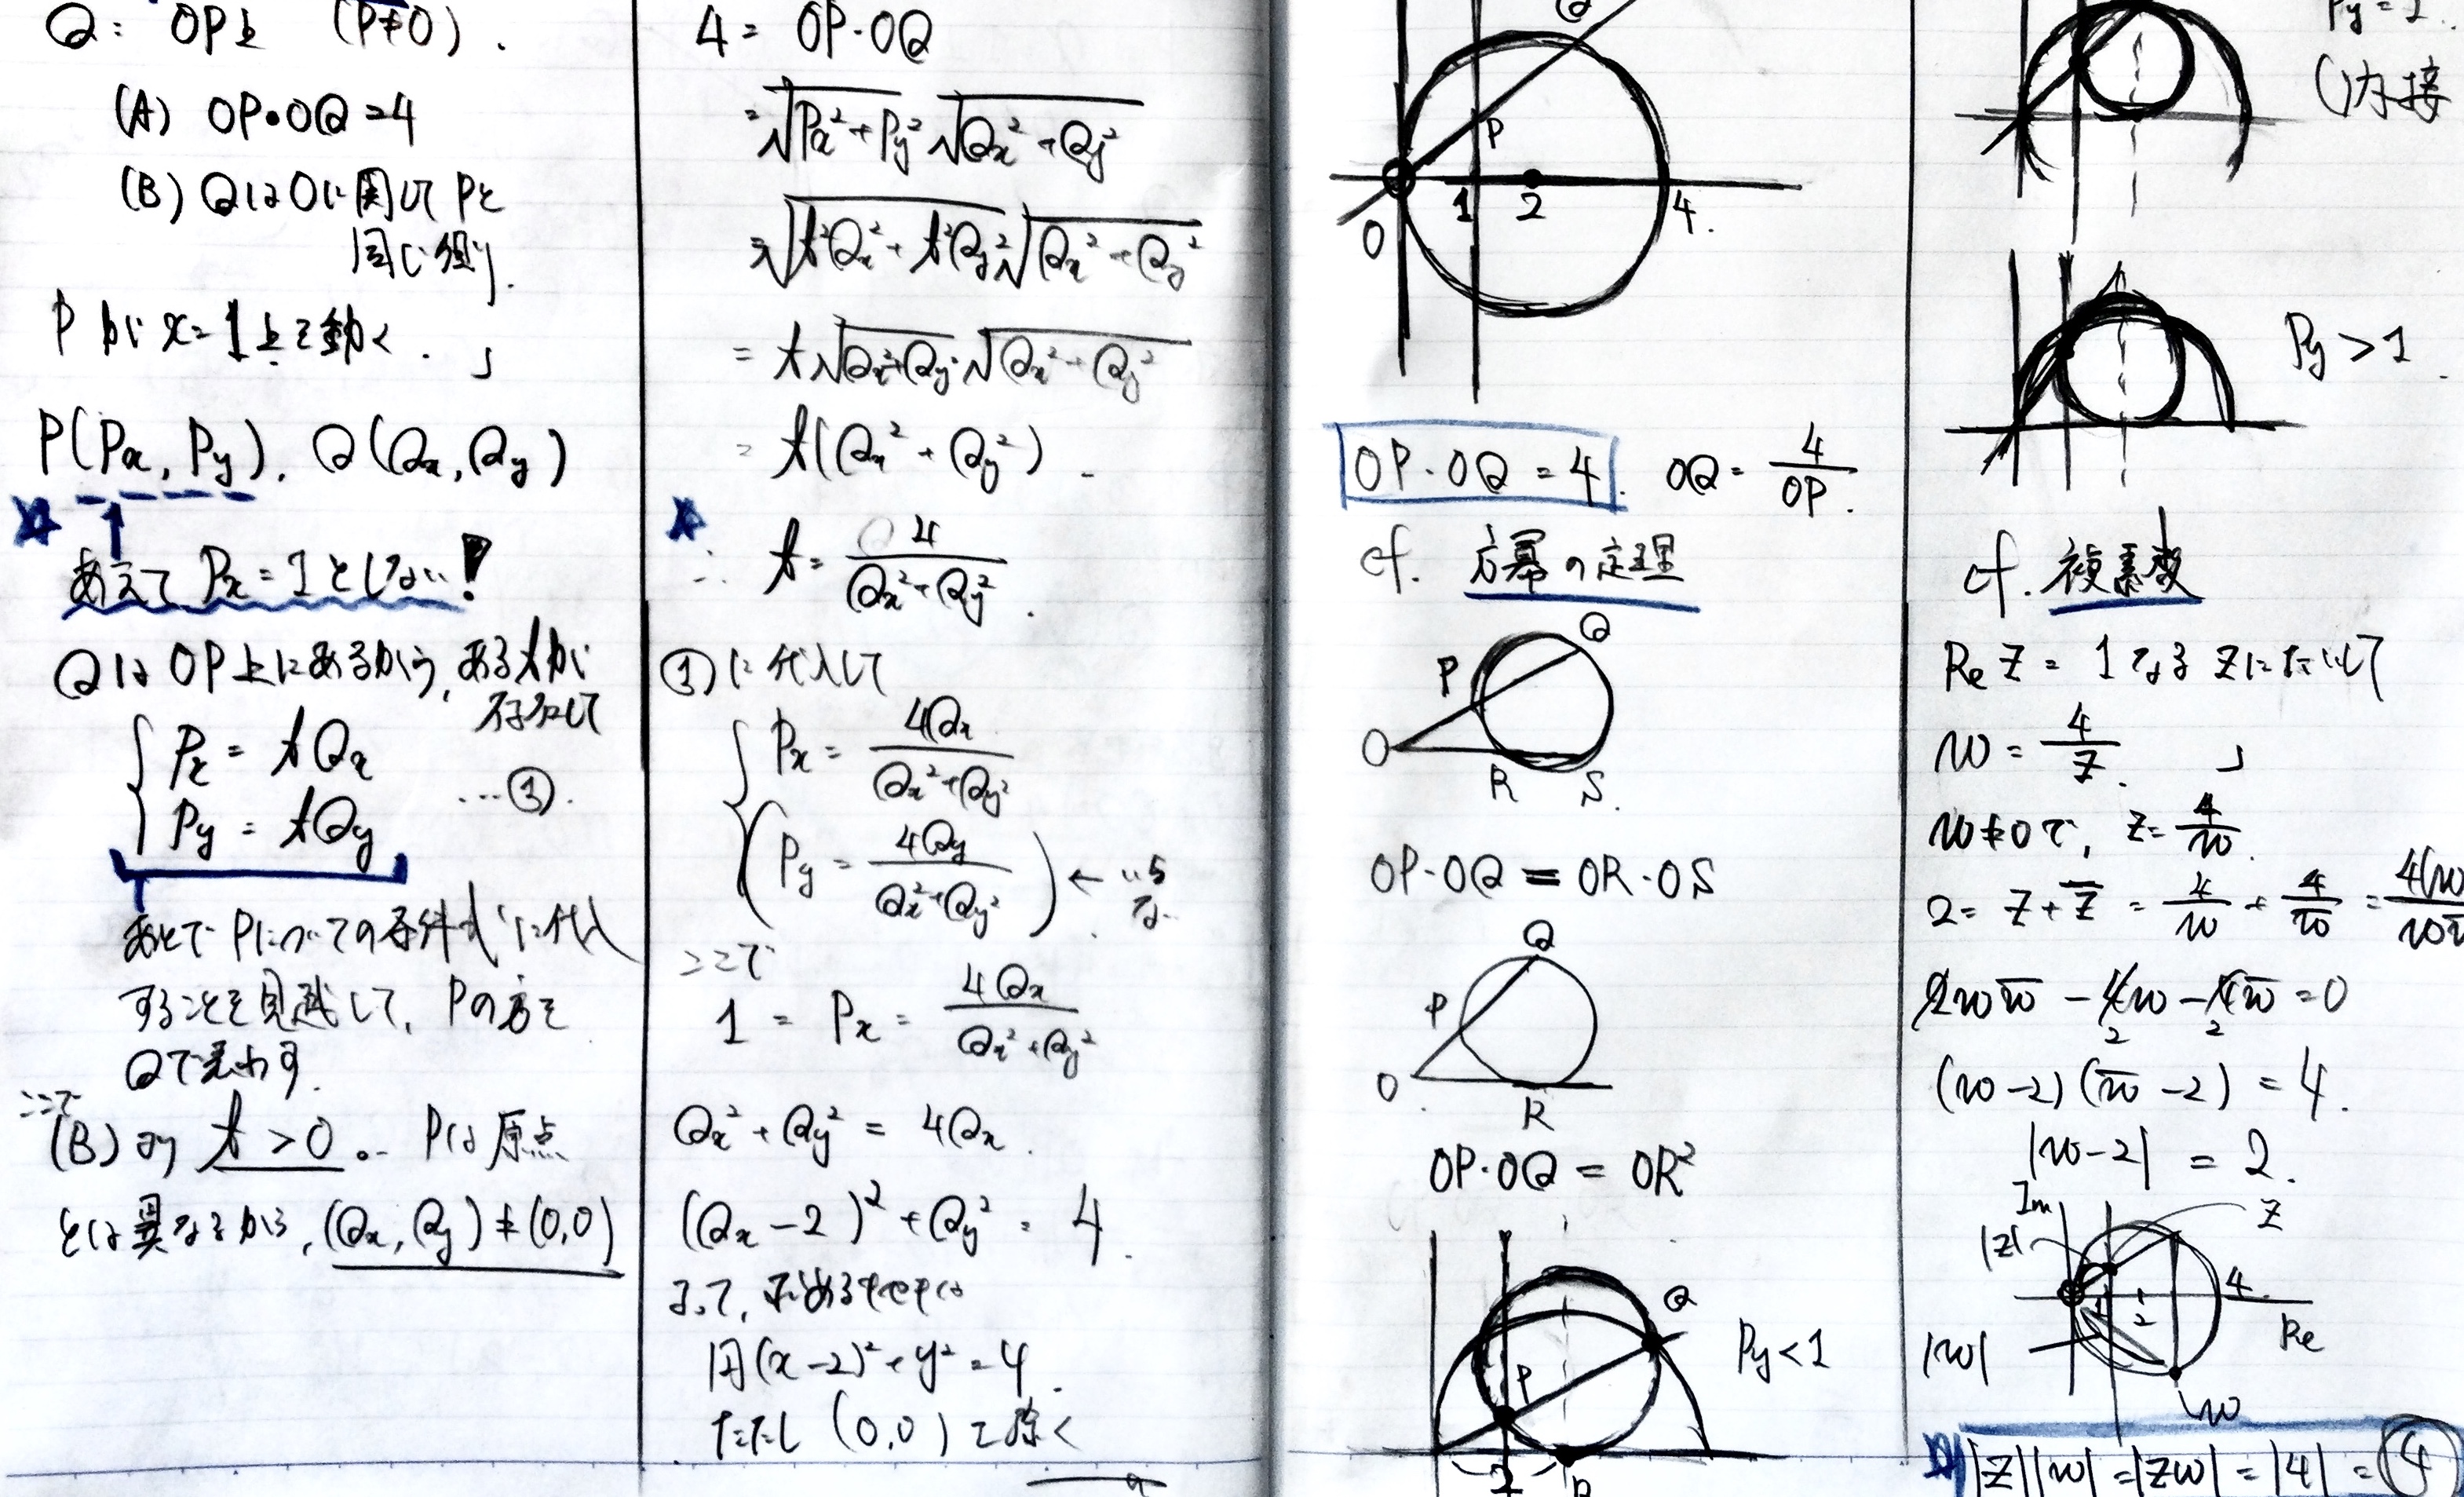 Q: OP上 (P≠0).
(A) OP・OQ=4
(B) QはOに関してPと
同じ側」.
Pがx=1上を動く.」
P(Px, Py). Q(Qx, Qy)
あえてPx=1としない!
QはOP上にあるから, あるtが
存在して
Px = tQx
Py = tQy
…①.
あとでPについての条件式に代入
することを見越して, Pの方を
Qで表わす.
ここで
(B)より t>0. Pは原点
とは異なるから, (Qx, Qy)≠(0,0)
4 = OP・OQ
=√Px²+Py² √Qx²+Qy²
=√t²Qx²+t²Qy² √Qx²+Qy²
= t√Qx²+Qy²・√Qx²+Qy²
= t(Qx²+Qy²)
∴ t = 4/(Qx²+Qy²).
①に代入して
Px = 4Qx/(Qx²+Qy²)
(Py = 4Qy/(Qx²+Qy²)) ←
ここで
1 = Px = 4Qx/(Qx²+Qy²)
Qx²+Qy² = 4Qx.
(Qx-2)²+Qy² = 4.
よって, 求める
円(x-2)²+y²=4.
ただし (0,0)を除く
Q
P
0 1 2 4.
OP・OQ=4. OQ = 4/OP.
cf. 方冪の定理
Q
P
O R S.
OP・OQ = OR・OS
Q
P
O R
OP・OQ = OR²
Q
P
Py<1
R
Py=1.
内接
Py>1
cf. 複素数
Re z = 1なるzにたいして
w = 4/z. 」
w≠0で, z=4/w.
2 = z+z̅ = 4/w + 4/w̅ =
2ww̅ - 4w - 4w̅ = 0
2 2
(w-2)(w̅-2) = 4.
|w-2| = 2.
Im
z
|z|
1 2 4
Re
|w|
w
|z||w|=|zw|=|4|=4